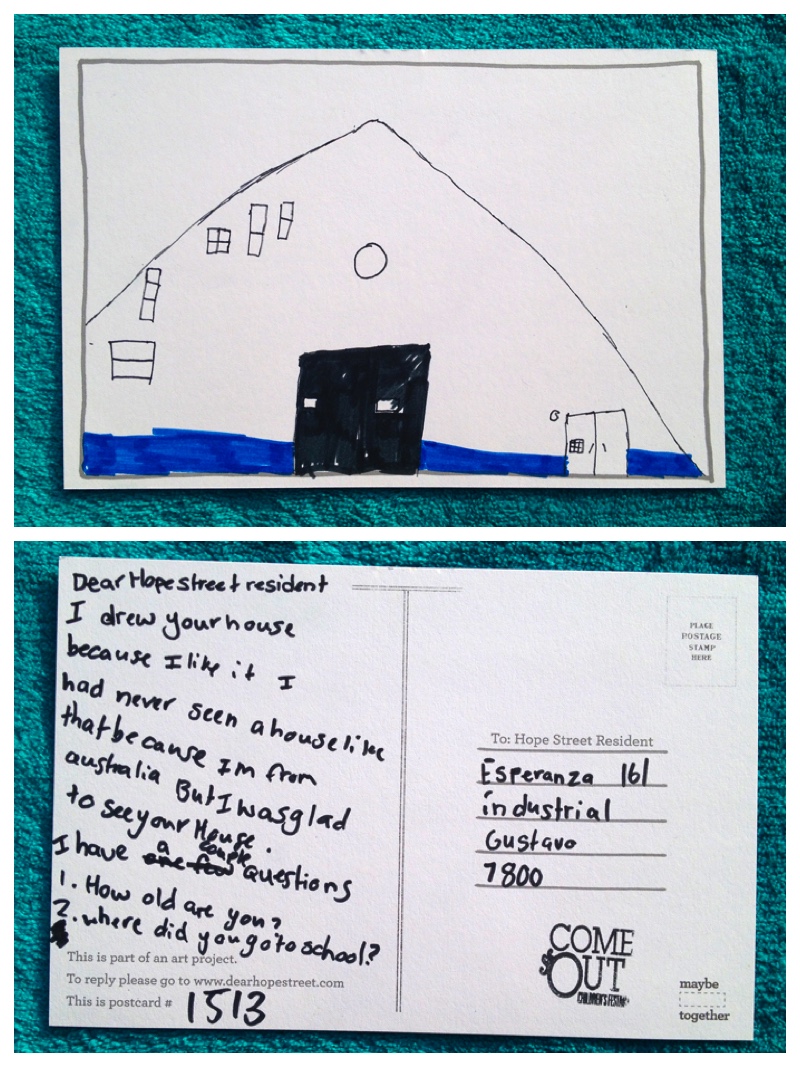 Dear Hope street resident
I drew your house
because I like it I
had never seen a house like
that because Im from
australia But I was glad
to see your House.
I have a couple questions
1. How old are you?
2. where did you go to school?
This is part of an art project.
To reply please go to www.dearhopestreet.com
This is postcard # 1513
PLACE
POSTAGE
STAMP
HERE
To: Hope Street Resident
Esperanza 161
industrial
Gustavo
7800
COME
OUT
CHILDREN'S FESTIVAL
maybe
together